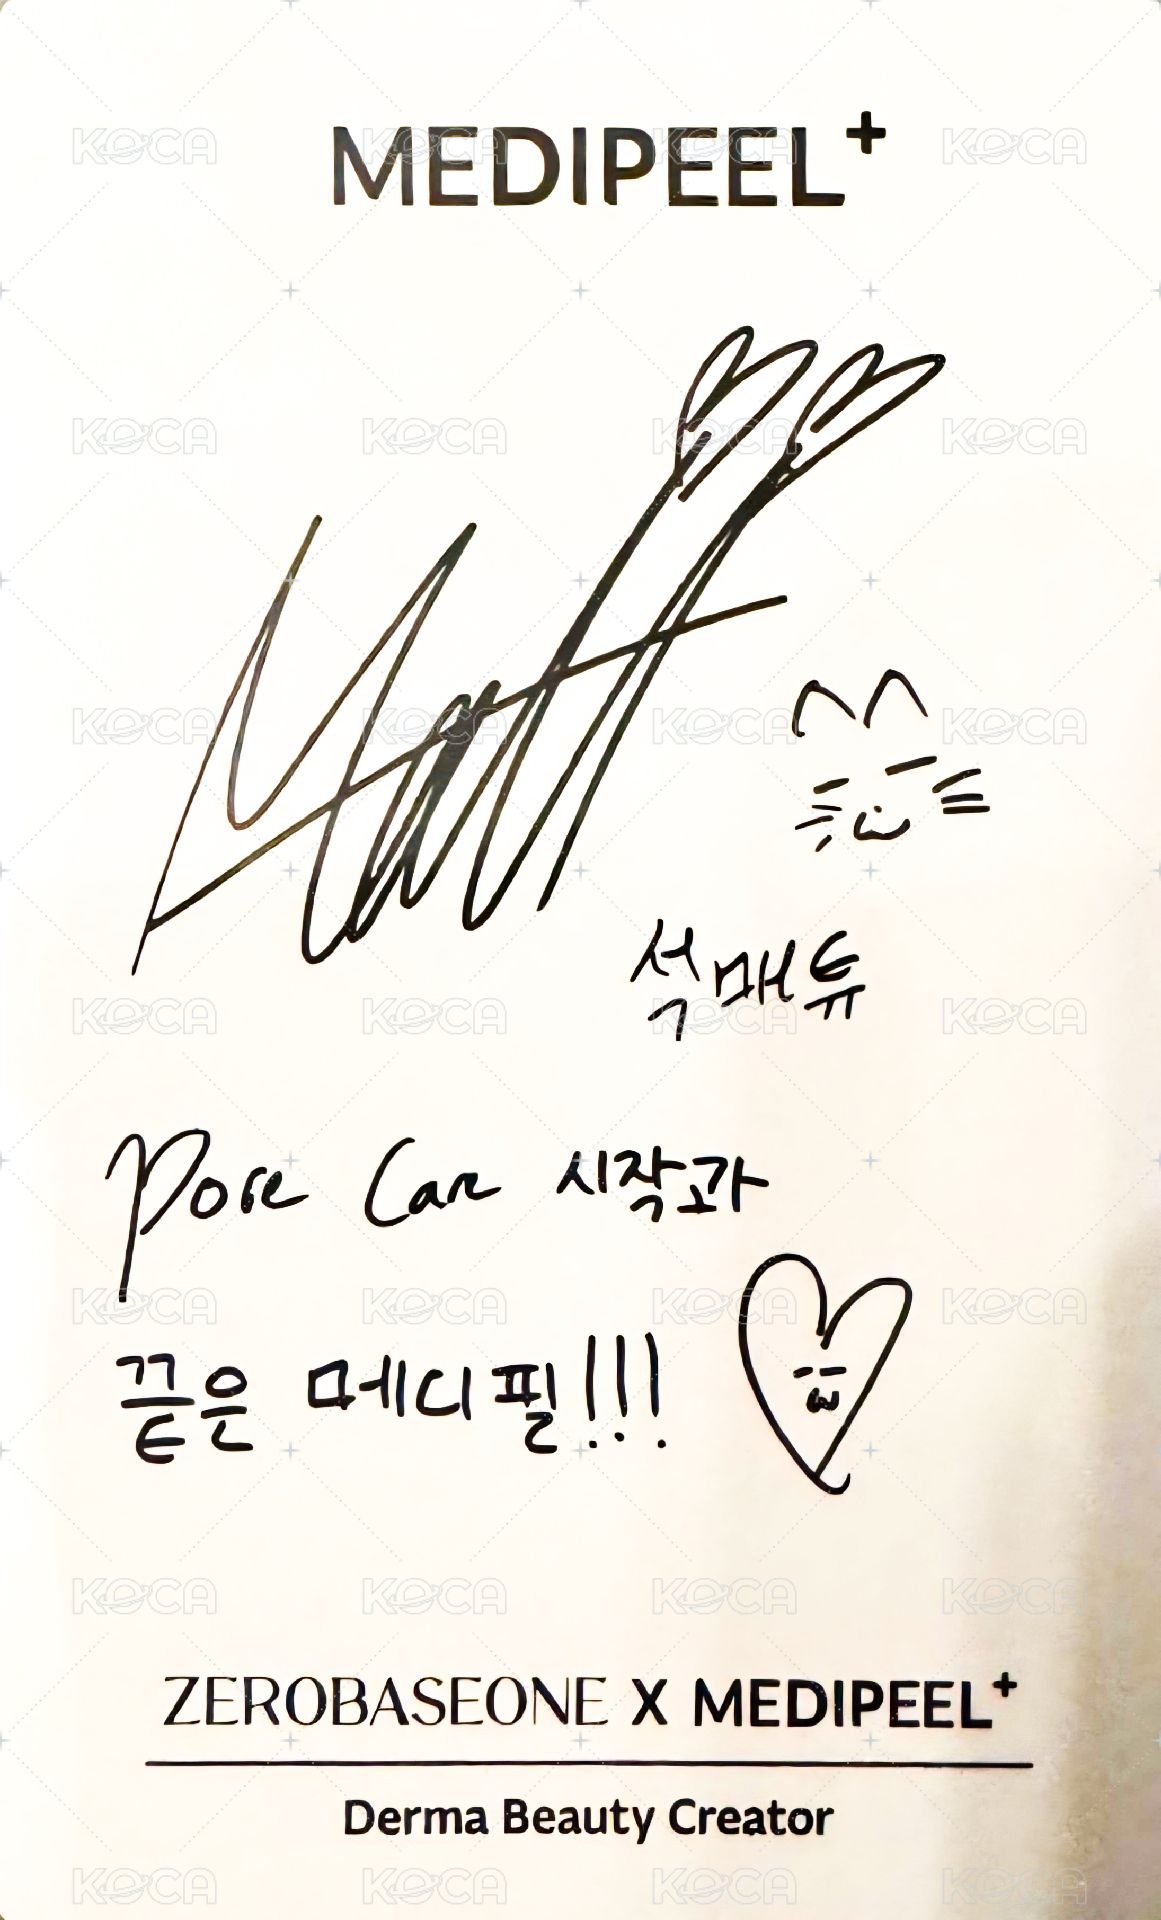 MEDIPEEL+
Matt
석매튜
Pore Care 시작과
끝은 메디필!!!
ZEROBASEONE X MEDIPEEL+
Derma Beauty Creator
KOCA